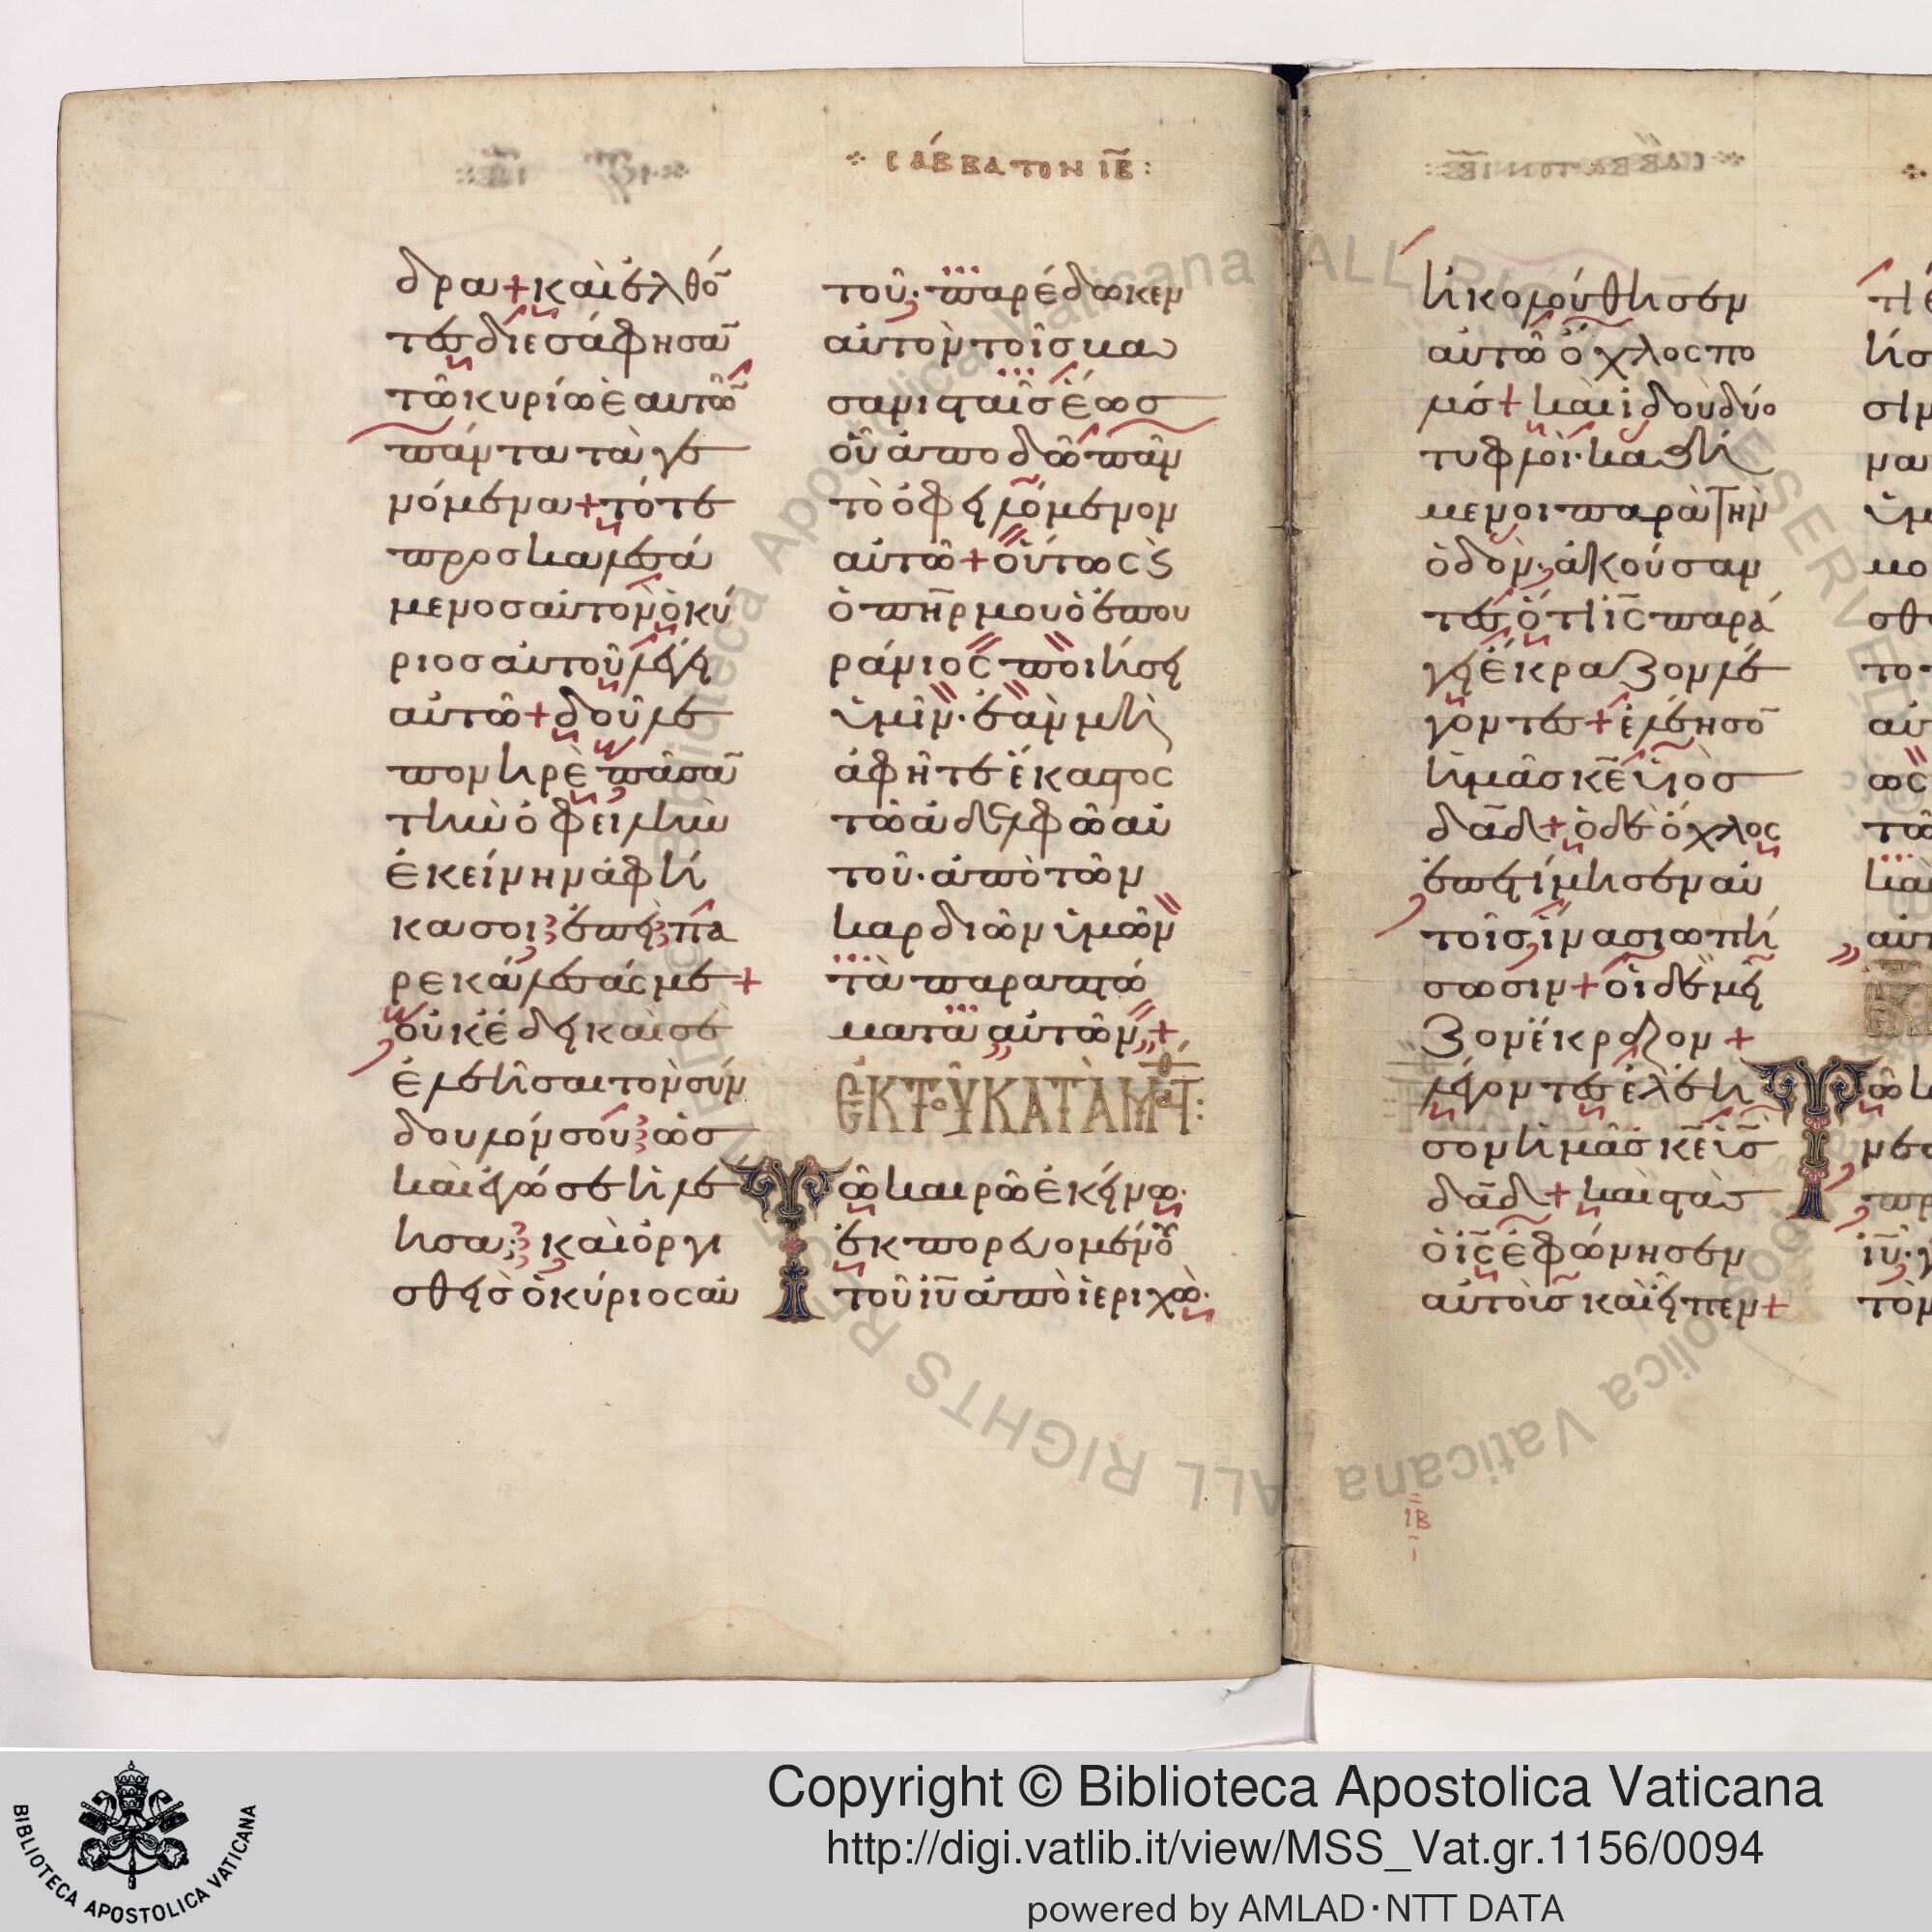 σάββατον ιβ:
δρα + και ἐλθό
τες διεσάφησα
τῶ κυρίω ἑαυτῶ
πάντα τὰ γε
νόμενα + τότε
προσκαλεσά
μενος αὐτὸν ὁ κύ
ριος αὐτοῦ λέγει
αὐτῶ + δοῦλε
πονηρὲ πᾶσα
τὴν ὀφειλὴν
ἐκείνην ἀφῆ
κα σοι ἐπεὶ πα
ρεκάλεσάς με +
οὐκ ἔδει καὶ σὲ
ἐλεῆσαι τὸν σύν
δουλόν σου ὡς
καὶ ἐγώ σε ἠλέ
ησα; καὶ ὀργι
σθεὶς ὁ κύριος αὐ
τοῦ· παρέδωκεν
αὐτὸν τοῖς βα
σανισταῖς ἕως
οὗ ἀποδῶ πᾶν
τὸ ὀφειλόμενον
αὐτῶ + οὕτως ϗ
ὁ πηρ μου ὁ ἐπου
ράνιος ποιήσει
ὑμῖν· ἐὰν μὴ
ἀφῆτε ἕκαστος
τῶ ἀδελφῶ αὐ
τοῦ· ἀπὸ τῶν
καρδιῶν ὑμῶν
τὰ παραπτώ
ματα αὐτῶν +
ἐκ τοῦ κατὰ Ματθ:
Τῶ καιρῶ ἐκείνω·
ἐκπορευομένου
τοῦ ιυ ἀπὸ ἱεριχὼ·
ἠκολούθησεν
αὐτῶ ὄχλος πο
λύς + καὶ ἰδοὺ δύο
τυφλοὶ· καθή
μενοι παρὰ τὴν
ὁδὸν· ἀκούσαν
τες ὅτι ις παρά
γει ἔκραζον λέ
γοντες + ἐλέησο
ἡμᾶς κε υἱὸς
δαδ + ὁ δὲ ὄχλος
ἐπετίμησεν αὐ
τοῖς ἵνα σιωπή
σωσιν + οἱ δὲ μεῖ
ζον ἔκραζον +
λέγοντες ἐλέη
σον ἡμᾶς κε υἱς
δαδ + καὶ στὰς
ὁ ις ἐφώνησεν
αὐτοὺς καὶ εἶπεν +
ιβ
ι
Copyright © Biblioteca Apostolica Vaticana
http://digi.vatlib.it/view/MSS_Vat.gr.1156/0094
powered by AMLAD·NTT DATA
BIBLIOTECA APOSTOLICA VATICANA